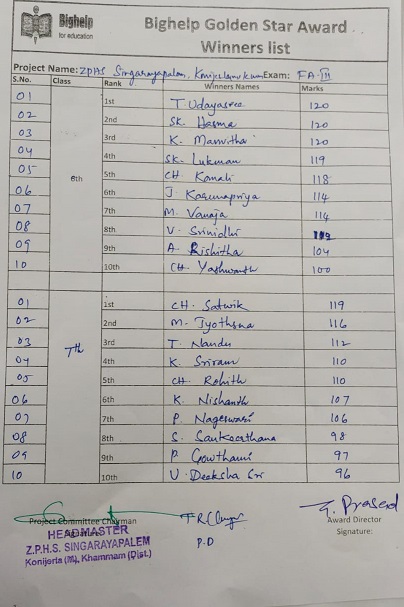 Bighelp
for education
Bighelp Golden Star Award
Winners list
Project Name: ZPHS Singarayapalem, Konijerla Exam: FA-III
S.No. Class Rank Winners Names Marks
01 1st T. Udayasree 120
02 2nd SK. Hasma 120
03 3rd K. Manvitha 120
04 4th SK. Lukman 119
05 5th CH. Komali 118
6th
06 6th J. Karunapriya 114
07 7th M. Vanaja 114
08 8th V. Srinidhi
09 9th A. Rishitha 104
10 10th CH. Yashwanth 100
01 1st CH. Satwik 119
02 2nd M. Jyothsna 116
03 3rd T. Nandu 112
7th
04 4th K. Sriram 110
05 5th CH. Rohith 110
06 6th K. Nishanth 107
07 7th P. Nageswari 106
08 8th S. Sankeerthana 98
09 9th P. Gowthami 97
10 10th V. Deeksha Sri 96
Project Committee Chairman
HEADMASTER
Z.P.H.S. SINGARAYAPALEM
Konijerla (M), Khammam (Dist.)
P.D
G. Prasad
Award Director
Signature: